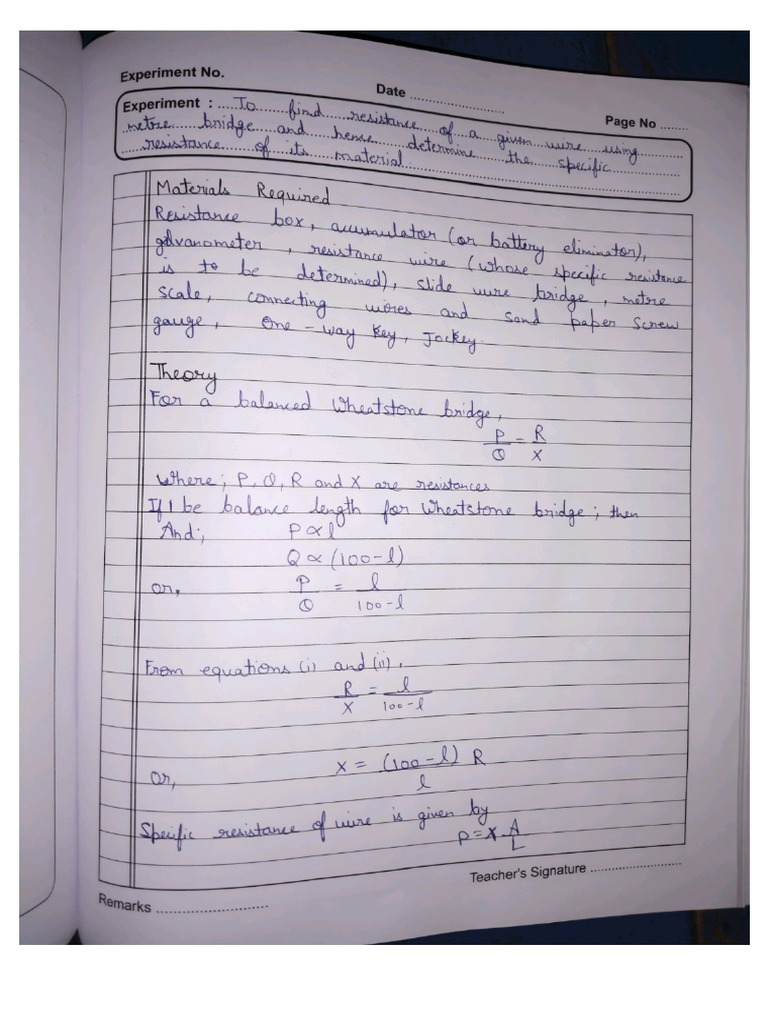 Experiment No.
Date ........................
Page No .......
Experiment : To find resistance of a given wire using
metre bridge and hence determine the specific
resistance of its material.
Materials Required
Resistance box, accumulator (or battery eliminator),
galvanometer, resistance wire (whose specific resistance
is to be determined), slide wire bridge, metre
scale, connecting wires and sand paper screw
gauge, One-way key, Jockey.
Theory
For a balanced Wheatstone bridge,
P/Q = R/X
where; P, Q, R and X are resistances
If l be balance length for Wheatstone bridge; then
And; P ∝ l
Q ∝ (100-l)
or, P/Q = l/100-l
From equations (i) and (ii),
R/X = l/100-l
or, X = (100-l) R/l
Specific resistance of wire is given by
P = X A/L
Teacher's Signature ........................
Remarks ............................